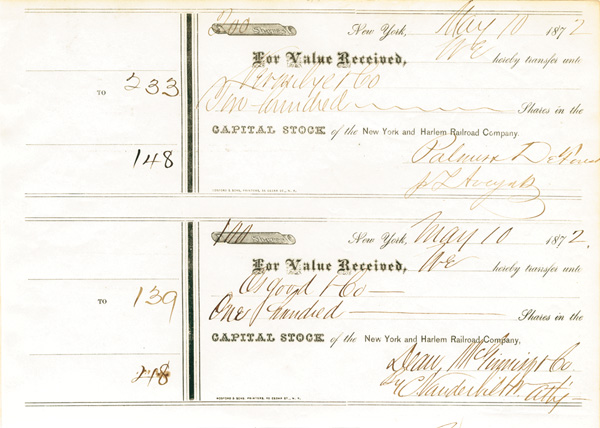 200 Shares
New York, May 10 1872
For Value Received, We hereby transfer unto
TO 233
& Co
Two Hundred Shares in the
CAPITAL STOCK of the New York and Harlem Railroad Company.
148
HOSFORD & SONS, PRINTERS, N. Y.
100 Shares
New York, May 10 1872.
For Value Received, We hereby transfer unto
Osgood & Co
TO 139
One Hundred Shares in the
CAPITAL STOCK of the New York and Harlem Railroad Company,
Dean, McGinnis & Co
248
by C Vanderbilt Atty
HOSFORD & SONS, PRINTERS, N. Y.